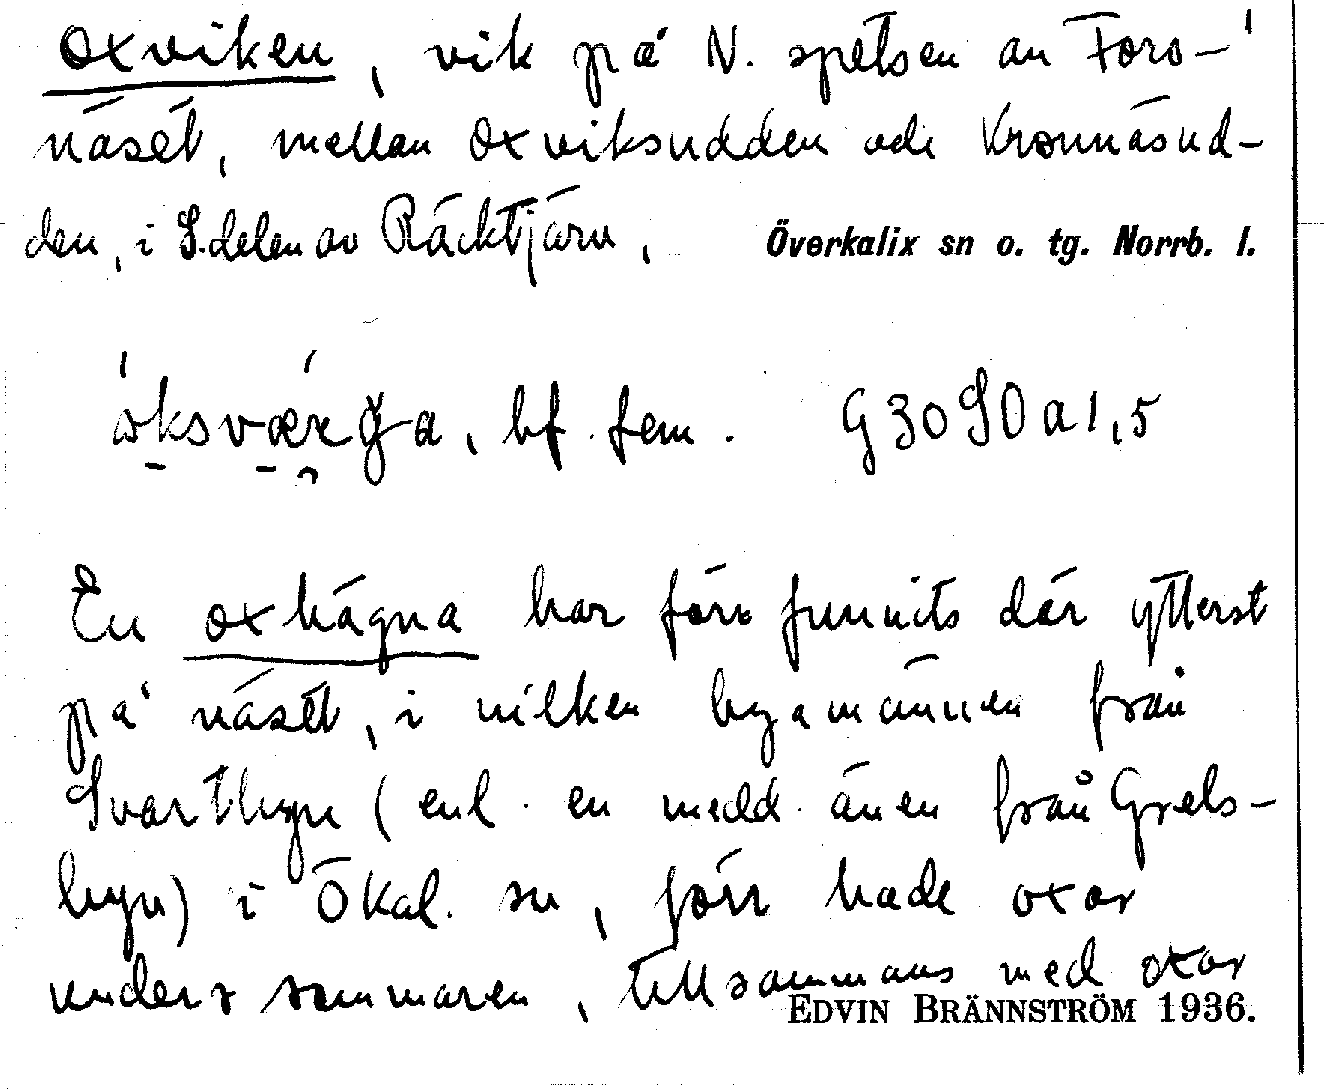 Oxviken, vik på N. spetsen av Fors-
näset, mellan Oxviksudden och Kronnäsud-
den, i S. delen av Räcktjärv. Överkalix sn o. tg. Norrb. l.
bf. fem. G3090a1,5
En oxhägna har förr funnits där ytterst
på näset, i vilken byamännen från
Svartbyn (enl. en medd. även från Grels-
byn) i Ökal. sn, förr hade oxar
under sommaren, tillsammans med oxar
EDVIN BRÄNNSTRÖM 1936.